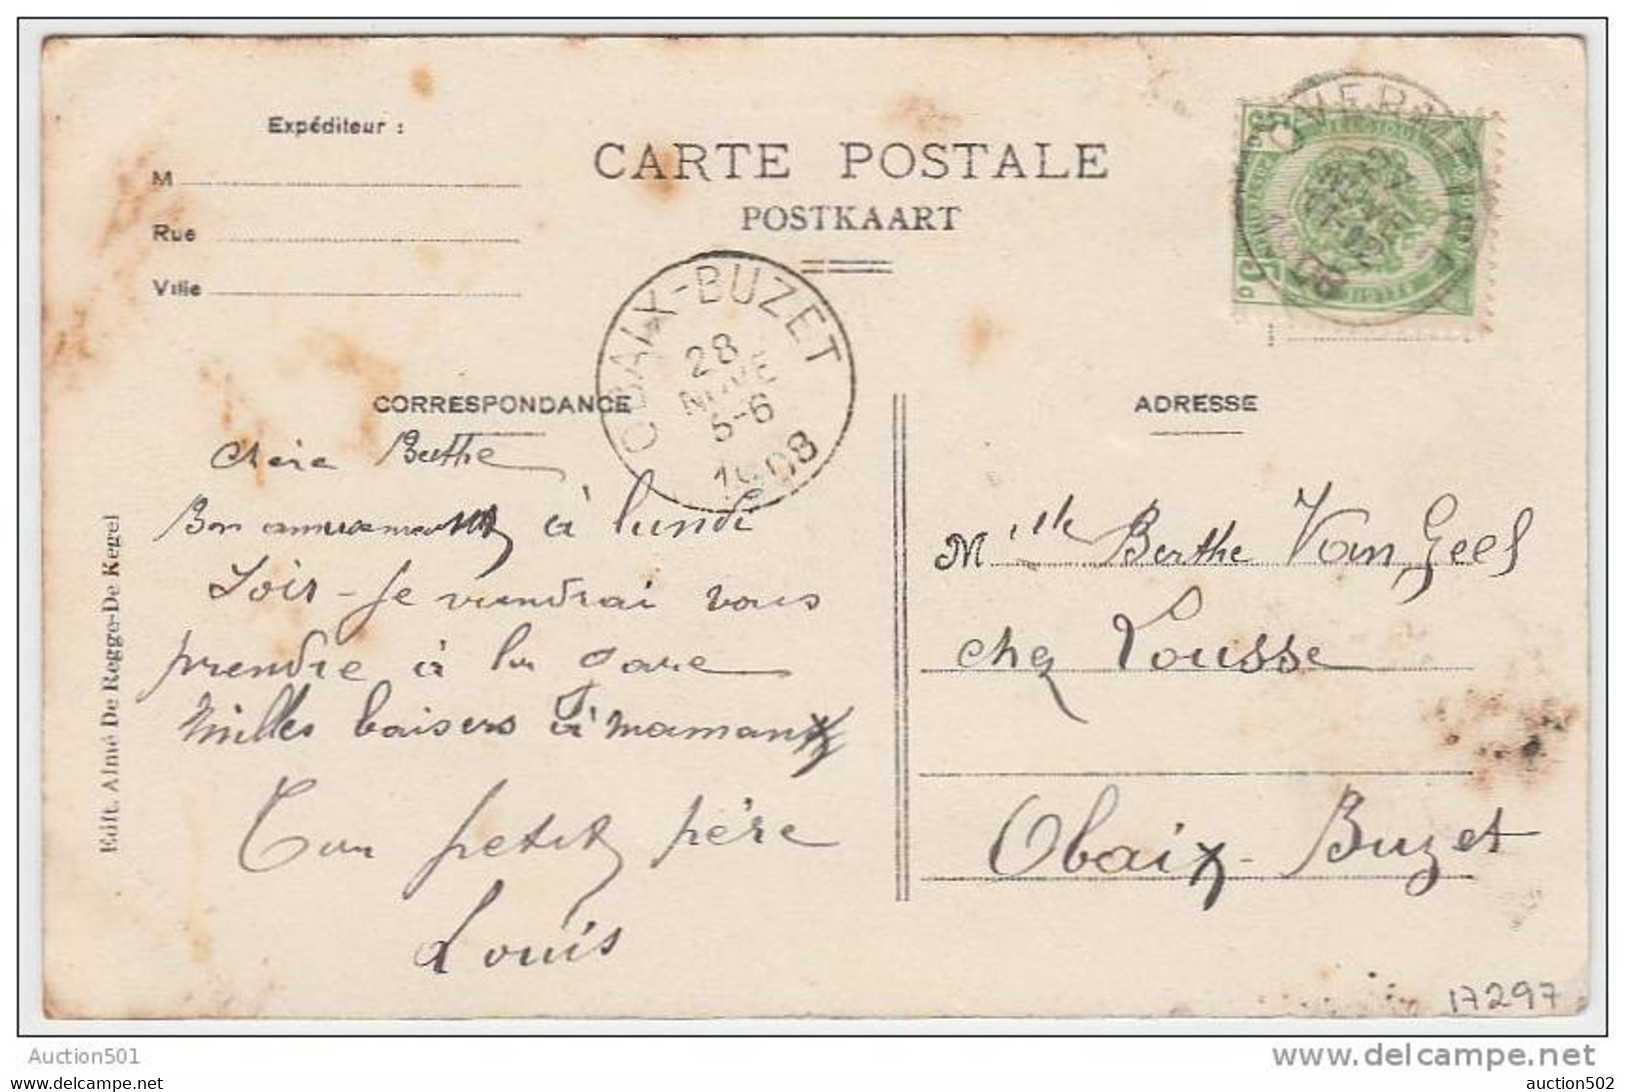 Expéditeur :
M
Rue
Ville
CARTE POSTALE
POSTKAART
OBAIX-BUZET
28
NOVE
5-6
1908
OVERM
CORRESPONDANCE
ADRESSE
Chère Berthe
Bon amusement à lundi
Soir - Je viendrai vous
prendre à la gare
Milles baisers à maman
Ton petit père
Louis
Mlle Berthe Van Geel
chez Lousse
Obaix-Buzet
Edit. Aimé De Regge-De Kegel
17297
Auction501
www.delcampe.net
auction502
auction502